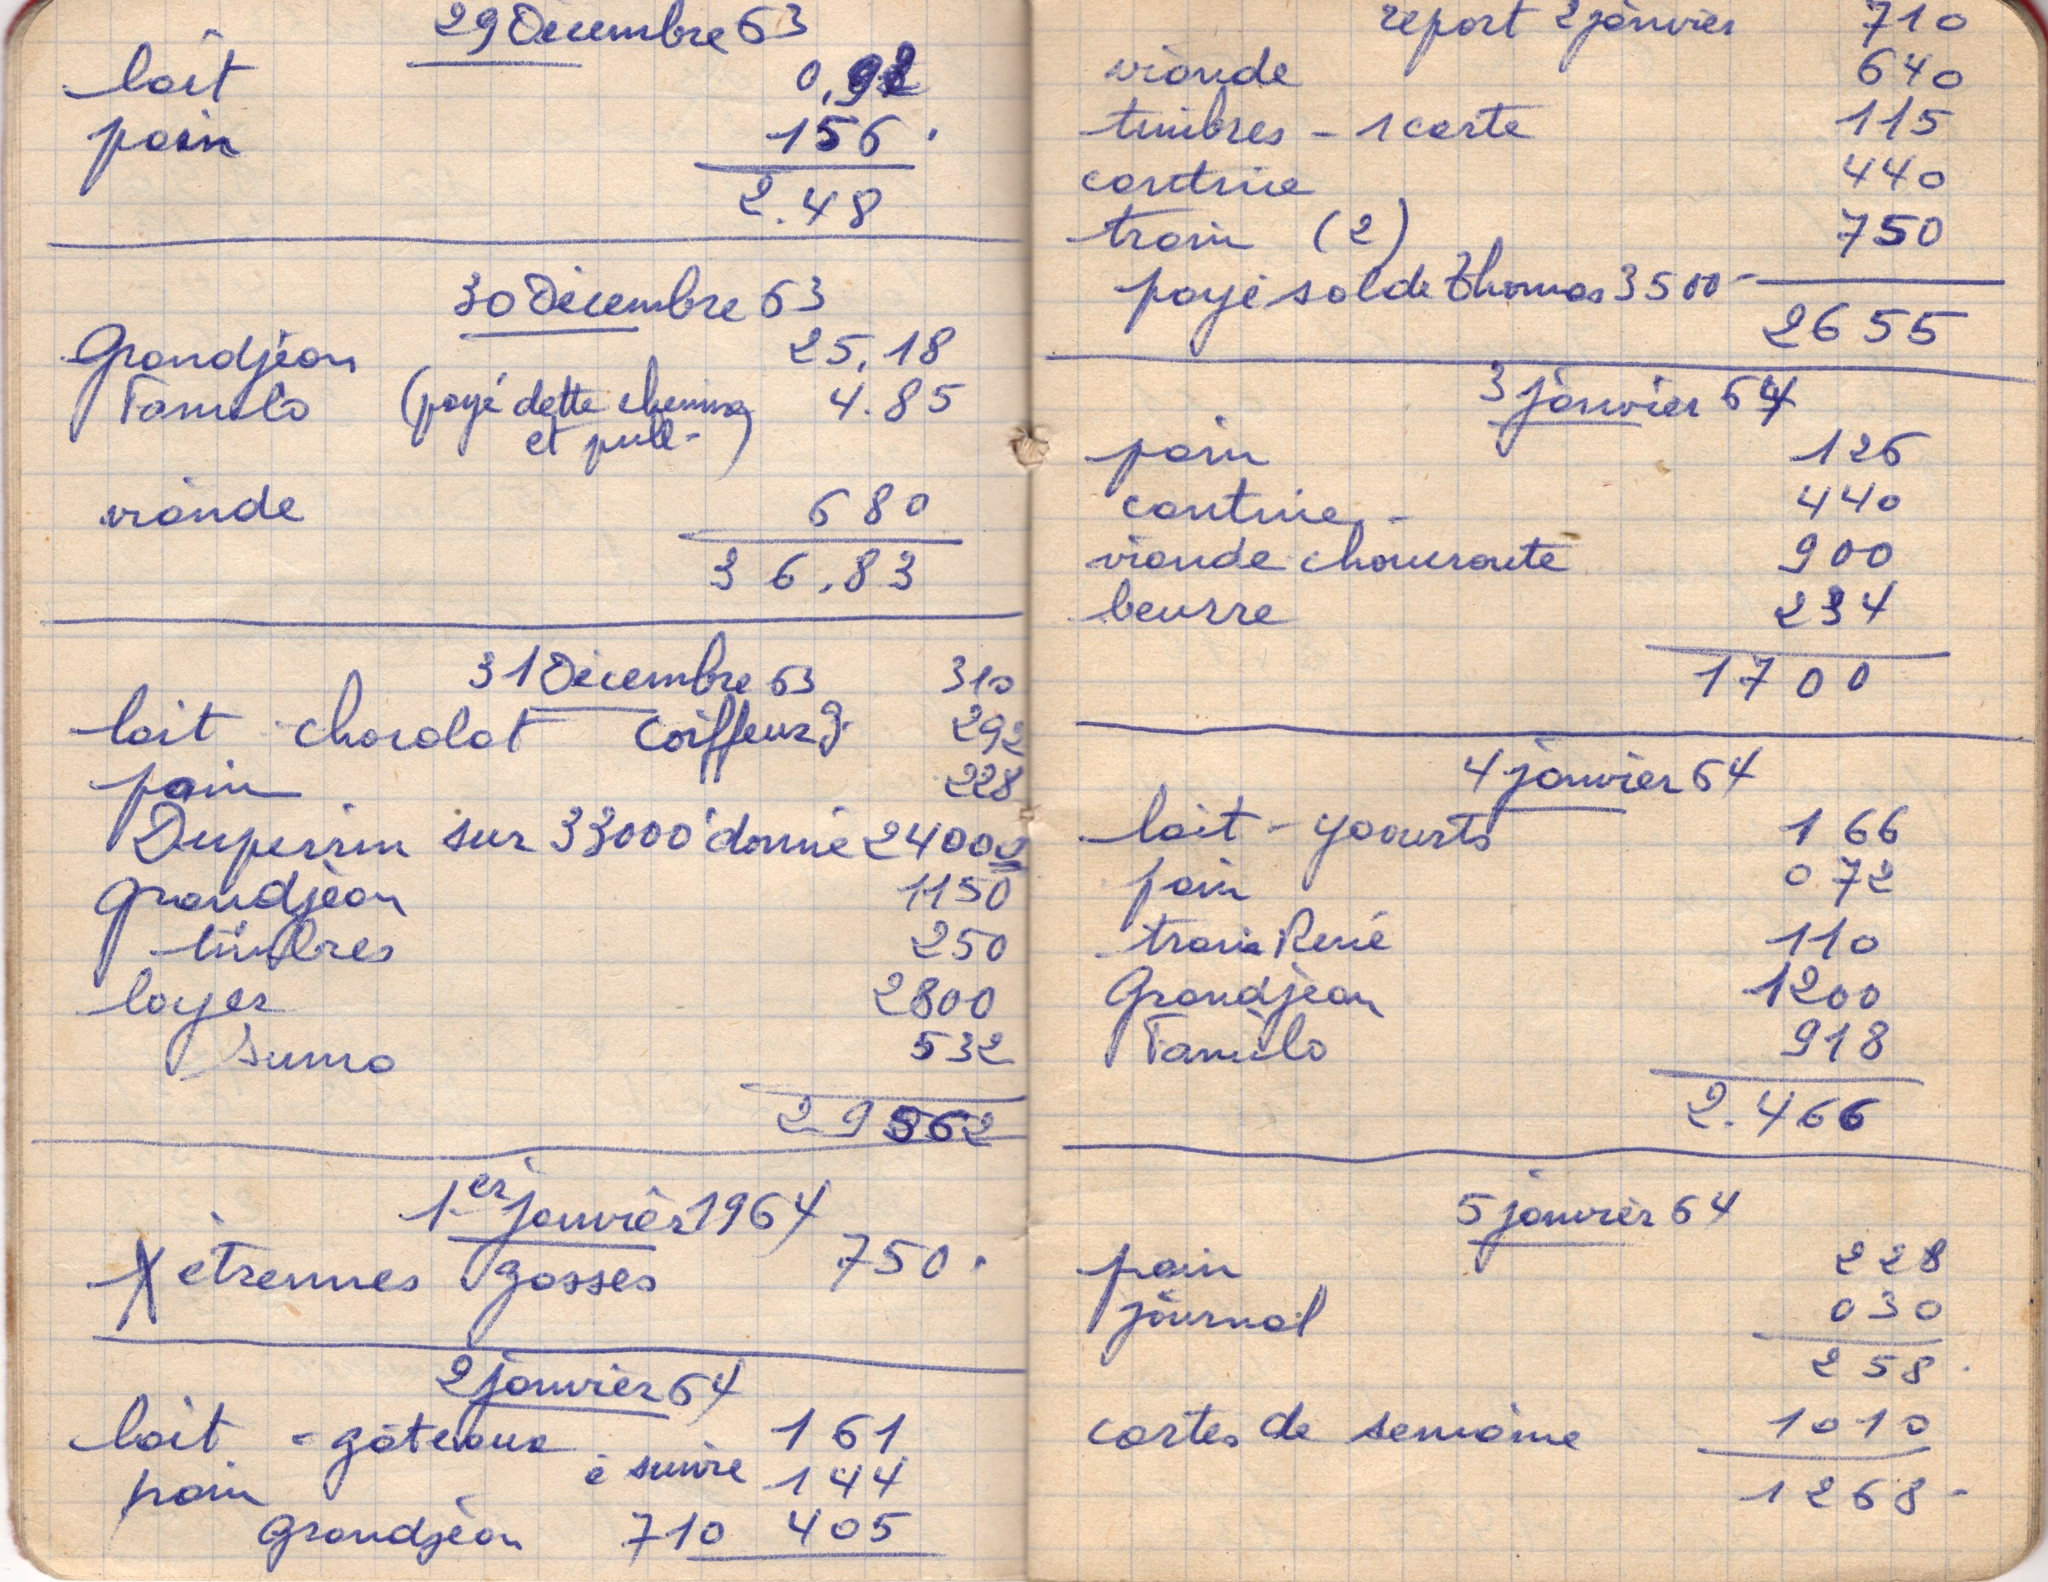 29 Décembre 63
lait 0,92
pain 156.
2.48
30 Décembre 63
Grandjean 25,18
Familo (payé dette chemise 4.85
et pull-)
viande 680
36.83
31 Décembre 63 310
lait chocolat Coiffeur 292
pain 228
Duperrin sur 33000 donné 24000
Grandjean 1150
timbres 250
loyer 2800
Suma 532
29562
1er janvier 1964
X étrennes gosses 750.
2 janvier 64
lait - gâteaux 161
pain à suivre 144
Grandjean 710 405
report 2 janvier 710
viande 640
timbres - 1 carte 115
cantine 440
train (2) 750
payé solde Thomas 3500-
2655
3 janvier 64
pain 126
cantine - 440
viande choucroute 900
beurre 234
1700
4 janvier 64
lait - yaourts 166
pain 072
train René 110
Grandjean 1200
Familo 918
2.466
5 janvier 64
pain 228
journal 030
258.
cartes de semaine 1010
1268-